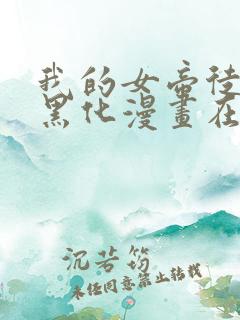 我的女帝徒
黑化漫画在
沉若筠
未经同意禁止转载